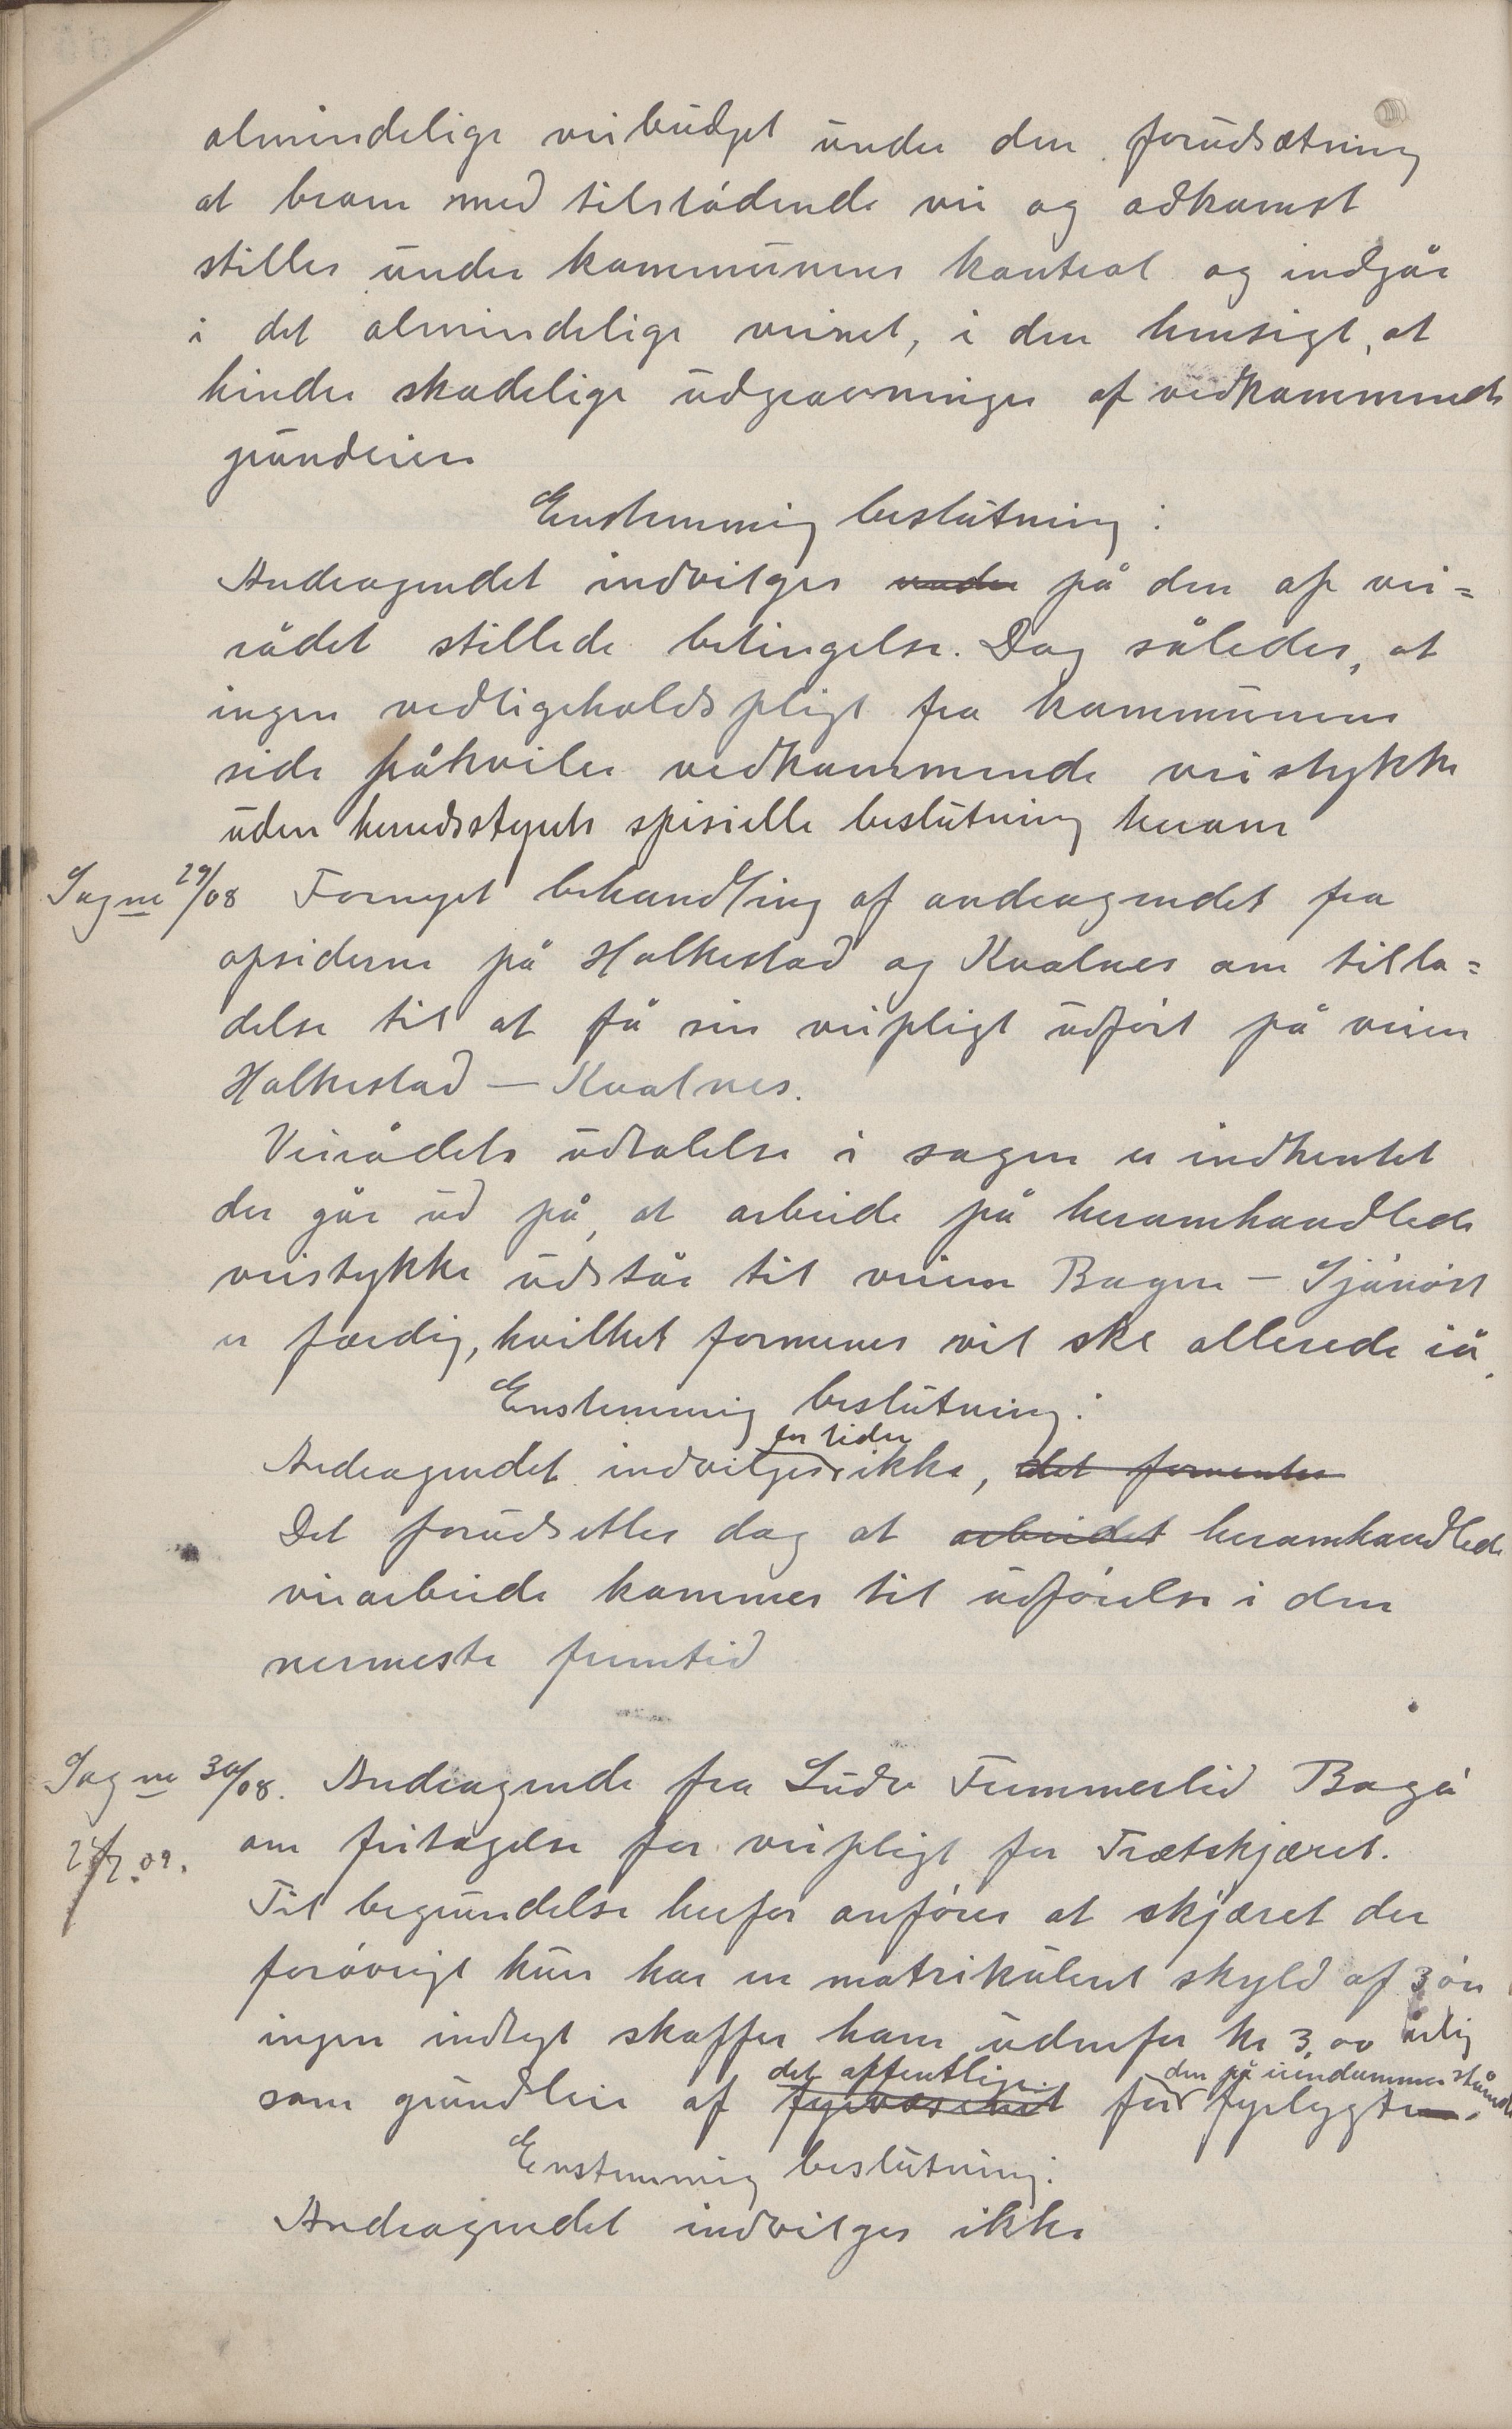 almindelige veibudget under den forudsætning
at broen med tilstødende vei og adkomst
stilles under kommunens kontrol og indgår
i det almindelige veinet, i den hensigt, at
hindre skadelige udgravninger af vedkommende
grundeier
Enstemmig beslutning:
Andragendet indvilges under på den af vei=
rådet stillede betingelse. Dog således, at
ingen vedligeholdspligt fra kommunens
side påhviler vedkommende veistykke
uden herredsstyrets spisielle beslutning herom
Sag nr 29/08 Fornyet behandling af andragendet fra
opsiderne på Halkestad og Kvalnes om tilla=
delse til at få sin veipligt udført på veien
Halkestad - Kvalnes.
Veirådets udtalelse i sagen er indhentet
der går ud på, at arbeide på heromhandlede
veistykke udstår til veiene Bagøen - Sjånöst
er færdig, hvilket formenes vil ske allerede iår.
Enstemmig beslutning:
Andragendet indvilges for tiden ikke, det forventes
Det forudsettes dog at arbeidet heromhandlede
veiarbeide kommer til udførelse i den
nermeste fremtid
Sag nr 30/08. Andragende fra Ludv Tummerlid Bogø
24/2.09. om fritagelse for veipligt for Trætskjæret.
Til begrundelse herfor anføres at skjæret der
forøvrigt kun har en matrikuleret skyld af 3 øre
ingen indtegt skaffer ham udenfor kr 3,00 årlig
som grundleie af fyrvæsenet det offentlige for den på eiendommen stående fyrlygten.
Enstemmig beslutning:
Andragendet indvilges ikke